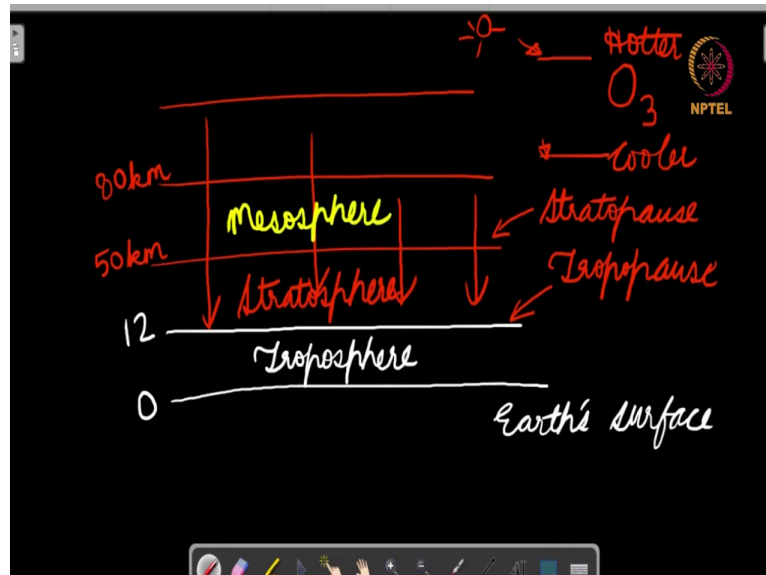 Hotter
O3
NPTEL
80km
Cooler
Mesosphere
Stratopause
50km
Stratosphere
Tropopause
12
Troposphere
0
Earth's surface